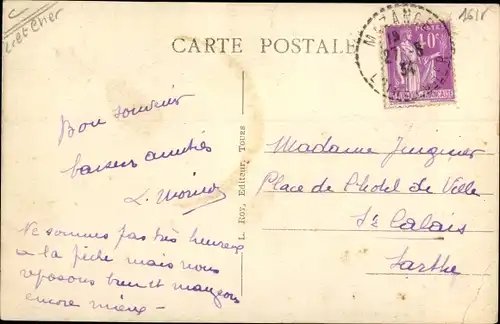 Loir et Cher
1618
CARTE POSTALE
MAZANGÉ
27 - 8
34
40c
Bon souvenir
baisers amitiés
L. Morin
Ne sommes pas très heureux
a la pêche mais nous
reposons bien et mangeons
encore mieux -
L. Roy, Editeur, Tours
Madame
Place de l'hotel de Ville
St Calais
Sarthe